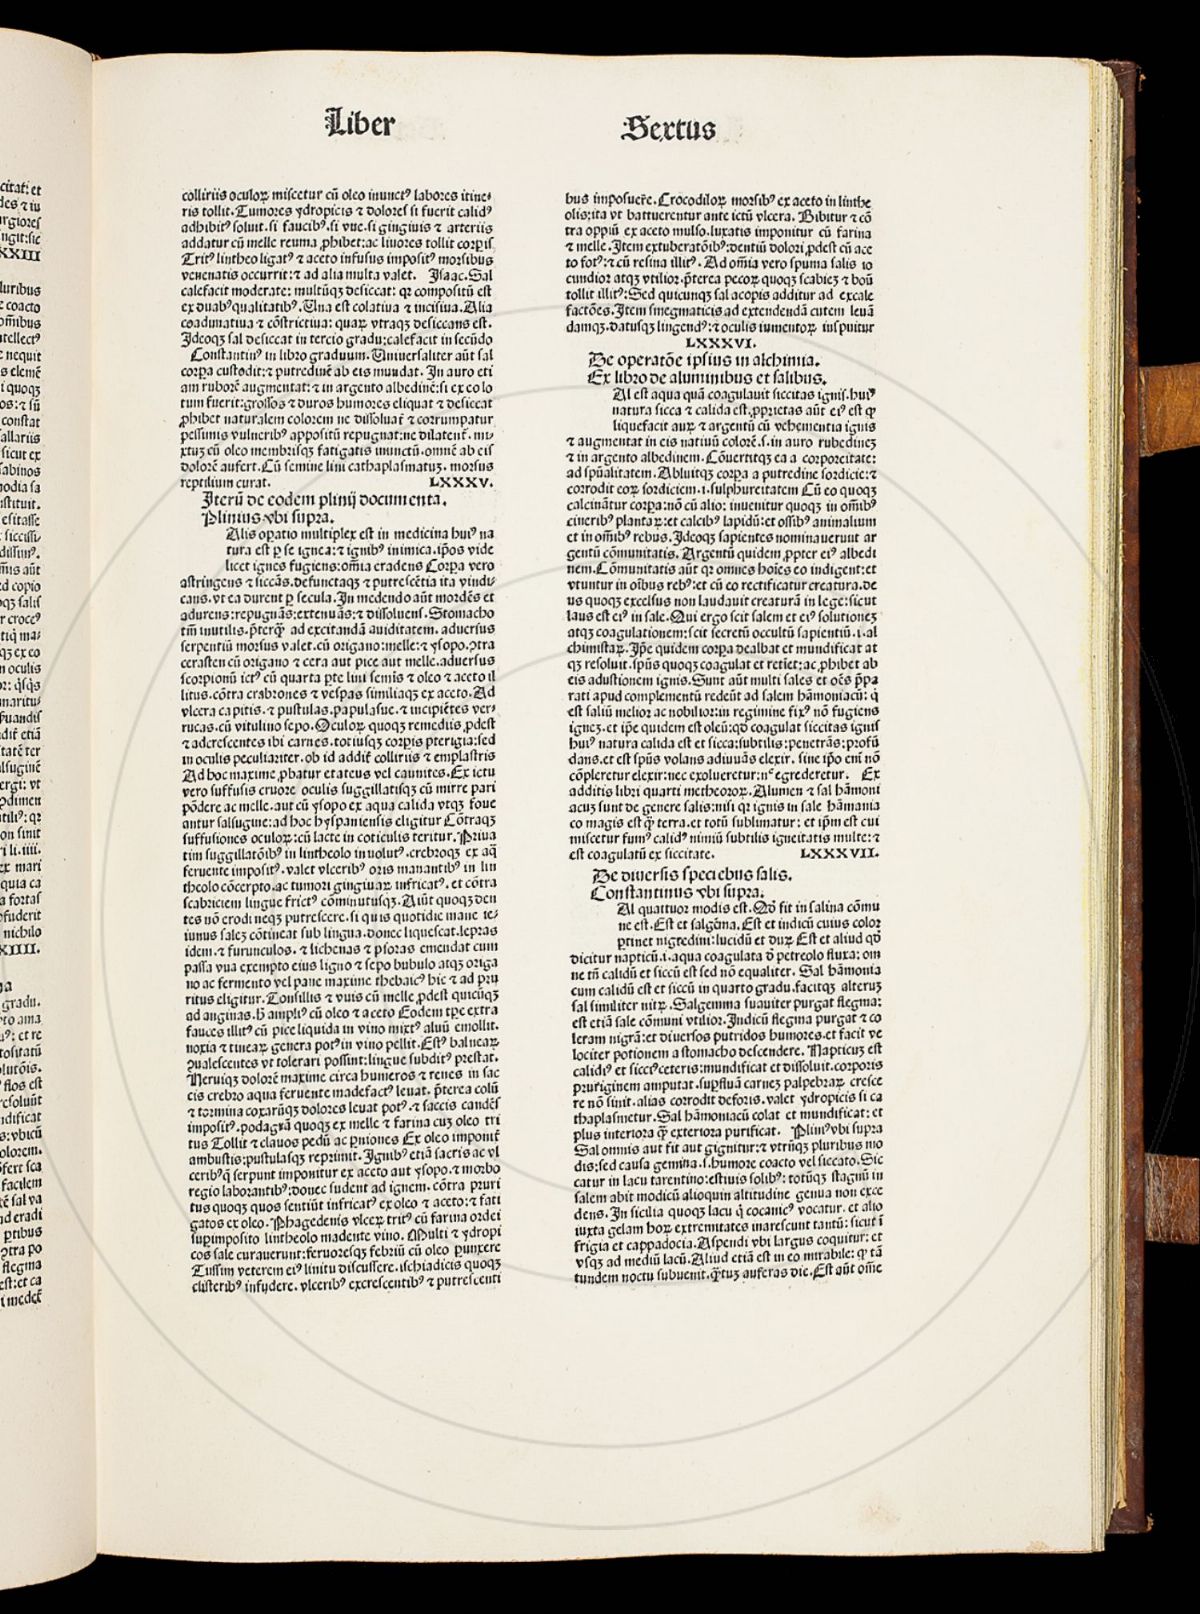 Liber Sextus
colliriis oculoꝝ miscetur cū oleo inunctꝰ labores itine⸗
ris tollit. Tumores ydropicis ⁊ dolores si fuerit calidꝰ
adhibitꝰ soluit. si faucibꝰ. si vue. si gingiuis ⁊ arteriis
addatur cū melle reuma ꝓhibet: ac liuores tollit corꝑis
Tritꝰ lintheo ligatꝰ ⁊ aceto infusus impositꝰ morsibus
venenatis occurrit: ⁊ ad alia multa valet. Isaac. Sal
calefacit moderate: multūqꝫ desiccat: qꝛ compositū est
ex duabꝰ qualitatibꝰ. Una est colatiua ⁊ incisiua. Alia
coadunatiua ⁊ cōstrictiua: quaꝝ vtraqꝫ desiccans est.
Ideoqꝫ sal desiccat in tercio gradu: calefacit in secūdo
Constantinꝰ in libro graduum. Uniuersaliter aūt sal
corꝑa custodit: ⁊ putredinē ab eis mundat. In auro eti
am ruborē augmentat: ⁊ in argento albedinē: si ex eo lo
tum fuerit: grossos ⁊ duros humores eliquat ⁊ desiccat
ꝓhibet naturalem colorem ne dissoluat᷑ ⁊ corrumpatur
pessimis vulneribꝰ appositū repugnat: ne dilatent᷑. mi⸗
xtuꝫ cū oleo membrisqꝫ fatigatis inunctū. omnē ab eis
dolorē aufert. Cū semine lini cathaplasmatuꝫ. morsus
reptilium curat. LXXXV.
Iterū de eodem plinij documenta.
Plinius vbi supra.
Alis oꝑatio multiplex est in medicina huiꝰ na
tura est ꝑ se ignea: ⁊ ignibꝰ inimica. ip̄os vide
licet ignes fugiens: om̄ia eradens Corꝑa vero
astringens ⁊ siccās. defunctaqꝫ ⁊ putrescētia ita vindi⸗
cans. vt ea durent ꝑ secula. In medendo aūt mordēs et
adurens: repugnās: extenuās: ⁊ dissoluens. Stomacho
tm̄ inutilis. p̄terqꝫ̄ ad excitandā auiditatem. aduersus
serpentiū morsus valet. cū origano: melle: ⁊ ysopo. ꝯtra
cerasten cū origano ⁊ cera aut pice aut melle. aduersus
scorpionū ictꝰ cū quarta ꝑte lini semīs ⁊ oleo ⁊ aceto il
litus. cōtra crabrones ⁊ vespas similiaqꝫ ex aceto. Ad
vlcera capitis. ⁊ pustulas. papulasue. ⁊ incipiētes ver⸗
rucas. cū vitulino sepo. Oculoꝝ quoqꝫ remediis ꝓdest
⁊ adcrescentes ibi carnes. totiusqꝫ corꝑis pterigia: sed
in oculis peculiariter. ob id addit᷑ colliriis ⁊ emplastris
Ad hoc maxime ꝓbatur etateus vel caunites. Ex ictu
vero suffusis cruore oculis suggillatisqꝫ cū mirre pari
pōdere ac melle. aut cū ysopo ex aqua calida vtqꝫ foue
antur salsugine: ad hoc hyspaniensis eligitur Cōtraqꝫ
suffusiones oculoꝝ. cū lacte in coticulis teritur. Priua
tim suggillatōibꝰ in lintheolo inuolutꝰ. crebroqꝫ ex aq̄
feruente impositꝰ. valet vlceribꝰ oris manantibꝰ in lin
theolo cōcerpto. ac tumori gingiuaꝝ infricatꝰ. et cōtra
scabriciem lingue frictꝰ cōminutusqꝫ. Aiūt quoqꝫ den
tes nō erodi neqꝫ putrescere. si quis quotidie mane ie⸗
iunus saleꝫ cōtineat sub lingua. donec liquescat. lepras
idem. ⁊ furunculos. ⁊ lichenas ⁊ psoras emendat cum
passa vua exempto eius ligno ⁊ sepo bubulo atqꝫ origa
no ac fermento vel pane maxime thebaicꝰ hic ⁊ ad pru
ritus eligitur. Tonsillis ⁊ vuis cū melle ꝓdest quicūqꝫ
ad anginas. h̄ ampliꝰ cū oleo ⁊ aceto Eodem tꝑe extra
fauces illitꝰ cū pice liquida in vino mixtꝰ aluū emollit.
noxia ⁊ tineaꝝ genera potꝰ in vino pellit. Estꝰ balneaꝝ
ꝯualescentes vt tolerari possint: lingue subditꝰ prestat.
Neruiqꝫ dolorē maxime circa humeros ⁊ renes in sac
cis crebro aqua feruente madefactꝰ leuat. p̄terea colū
⁊ tormina coxarūqꝫ dolores leuat potꝰ. ⁊ saccis candēs
impositꝰ. podagrā quoqꝫ ex melle ⁊ farina cuꝫ oleo tri
tus Tollit ⁊ clauos pedū ac ꝑniones Ex oleo imponit᷑
ambustis: pustulasqꝫ reprimit. Ignibꝰ etiā sacris ac vl
ceribꝰ q̄ serpunt imponitur ex aceto aut ysopo. ⁊ morbo
regio laborantibꝰ: donec sudent ad ignem. cōtra pruri
tus quoqꝫ quos sentiūt infricatꝰ ex oleo ⁊ aceto: ⁊ fati
gatos ex oleo. Phagedenis vlceꝝ tritꝰ cū farina ordei
suꝑimposito lintheolo madente vino. Multi ⁊ ydropi
cos sale curauerunt: feruoresqꝫ febriū cū oleo ꝑunxere
Tussim veterem eiꝰ linitu discussere. ischiadicis quoqꝫ
clisteribꝰ infudere. vlceribꝰ excrescentibꝰ ⁊ putrescenti
bus imposuer̄e. Crocodiloꝝ morsibꝰ ex aceto in linthe
olis: ita vt battuerentur ante ictū vlcera. Bibitur ⁊ cō
tra oppiū ex aceto mulso. luxatis imponitur cū farina
⁊ melle. Item extuberatōibꝰ: dentiū dolori ꝓdest cū ace
to fotꝰ: ⁊ cū resina illitꝰ. Ad om̄ia vero spuma salis io
cundior atqꝫ vtilior. p̄terea pecoꝝ quoqꝫ scabieꝫ ⁊ boū
tollit illitꝰ: Sed quicunqꝫ sal acopis additur ad excale
factōes. Item smegmaticis ad extendendā cutem leuā
damqꝫ. datusqꝫ lingendꝰ: ⁊ oculis iumentoꝝ inspuitur
LXXXVI.
De operatōe ipsius in alchimia.
Ex libro de aluminibus et salibus.
Al est aqua quā coagulauit siccitas ignis. huiꝰ
natura sicca ⁊ calida est. ꝓprietas aūt eiꝰ est ꝙ
liquefacit auꝝ ⁊ argentū cū vehementia ignis
⁊ augmentat in eis natiuū colorē. s. in auro rubedineꝫ
⁊ in argento albedinem. Cōuertitqꝫ ea a corporeitate:
ad sp̄ualitatem. Abluitqꝫ corꝑa a putredine sordicie: ⁊
corrodit eoꝝ sordiciem. i. sulphureitatem Cū eo quoqꝫ
calcinātur corꝑa: nō cū alio: inuenitur quoqꝫ in om̄ibꝰ
cineribꝰ plantaꝝ: et calcibꝰ lapidū: et ossibꝰ animalium
et in om̄ibꝰ rebus. Ideoqꝫ sapientes nominauerunt ar
gentū cōmunitatis. Argentū quidem ꝓpter eiꝰ albedi
nem. Cōmunitatis aūt qꝛ omnes hoīes eo indigent: et
vtuntur in oībus rebꝰ: et cū eo rectificatur creatura. de
us quoqꝫ excelsus non laudauit creaturā in lege: sicut
laus est eiꝰ in sale. Qui ergo scit salem et eiꝰ solutioneꝫ
atqꝫ coagulationem: scit secretū occultū sapientiū. i. al
chimistaꝝ. Ip̄e quidem corꝑa dealbat et mundificat at
qꝫ resoluit. sp̄us quoqꝫ coagulat et retiet: ac ꝓhibet ab
eis adustionem ignis. Sunt aūt multi sales et oēs p̄pa
rati apud complementū redeūt ad salem hāmoniacū: q̄
est saliū melior ac nobilior: in regimine fixꝰ nō fugiens
igneꝫ. et ip̄e quidem est oleū: qd̄ coagulat siccitas ignis
huiꝰ natura calida est et sicca: subtilis: penetrās: profū
dans. et est sp̄us volans adiuuās elexir. sine ip̄o eni᷑ nō
cōpleretur elexir: nec exolueretur: nͨ egrederetur. Ex
additis libri quarti metheoroꝝ. Alumen ⁊ sal hāmoni
acuꝫ sunt de genere salis: nisi qꝛ ignis in sale hāmania
co magis est ꝙ̄ terra. et totū sublimatur: et ip̄m est cui
miscetur fumꝰ calidꝰ nimiū subtilis igneitatis multe: ⁊
est coagulatū ex siccitate. LXXXVII.
De diuersis speciebus salis.
Constantinus vbi supra.
Al quattuor modis est. Qd̄ fit in salina cōmu
ne est. Est et salgēma. Est et indicū cuius color
ꝑtinet nigredini: lucidū et duꝝ Est et aliud qd̄
dicitur napticū. i. aqua coagulata d̄ petreolo fluxa: om
ne tn̄ calidū et siccū est sed nō equaliter. Sal hāmonia
cum calidū est et siccū in quarto gradu. facitqꝫ alteruꝫ
sal similiter nitꝝ. Salgemma suauiter purgat flegma:
est etiā sale cōmuni vtilior. Indicū flegma purgat ⁊ co
leram nigrā: et diuersos putridos humores. et facit ve
lociter potionem a stomacho descendere. Napticuꝫ est
calidiꝰ et sicciꝰ ceteris: mundificat et dissoluit. corporis
pruriginem amputat. suꝑfluā carneꝫ palpebraꝝ cresce
re nō sinit. alias corrodit deforis. valet ydropicis si ca
thaplasmetur. Sal hāmoniacū colat et mundificat: et
plus interiora ꝙ̄ exteriora purificat. Pliniꝰ vbi supra
Sal omnis aut fit aut gignitur: ⁊ vtrūqꝫ pluribus mo
dis: sed causa gemina. s. humore coacto vel siccato. Sic
catur in lacu tarentino: estiuis solibꝰ: totūqꝫ stagnū in
salem abit modicū alioquin altitudine genua non exce
dens. In sicilia quoqꝫ lacu q̄ cocanicꝰ vocatur. et alio
iuxta gelam hoꝝ extremitates inarescunt tantū: sicut ī
frigia et cappadocia. Aspendi vbi largus coquitur: et
vsqꝫ ad mediū lacū. Aliud etiā est in eo mirabile: ꝙ tā
tundem noctu subuenit. ꝙ̄tuꝫ auferas die. Est aūt om̄e